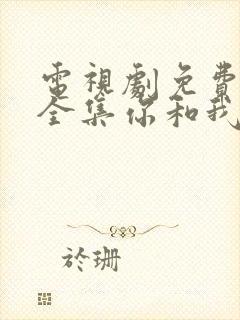 電視劇免費
全集你和我
於珊